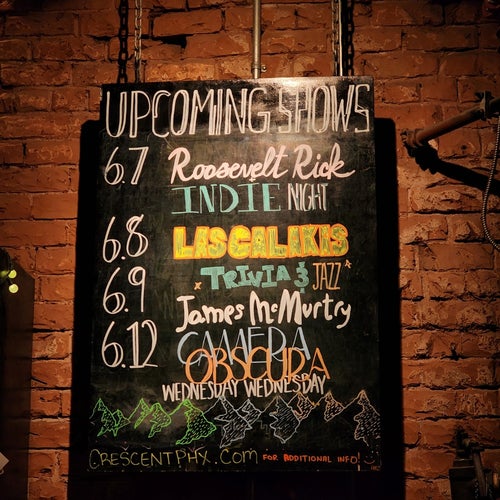 UPCOMING SHOWS
6.7 Roosevelt Rick
INDIE NIGHT
6.8 LAS CALAKAS
6.9 TRIVIA & JAZZ
James McMurtry
6.12 CAMERA
OBSCURA
WEDNESDAY WEDNESDAY
CRESCENTPHX.COM FOR ADDITIONAL INFO!